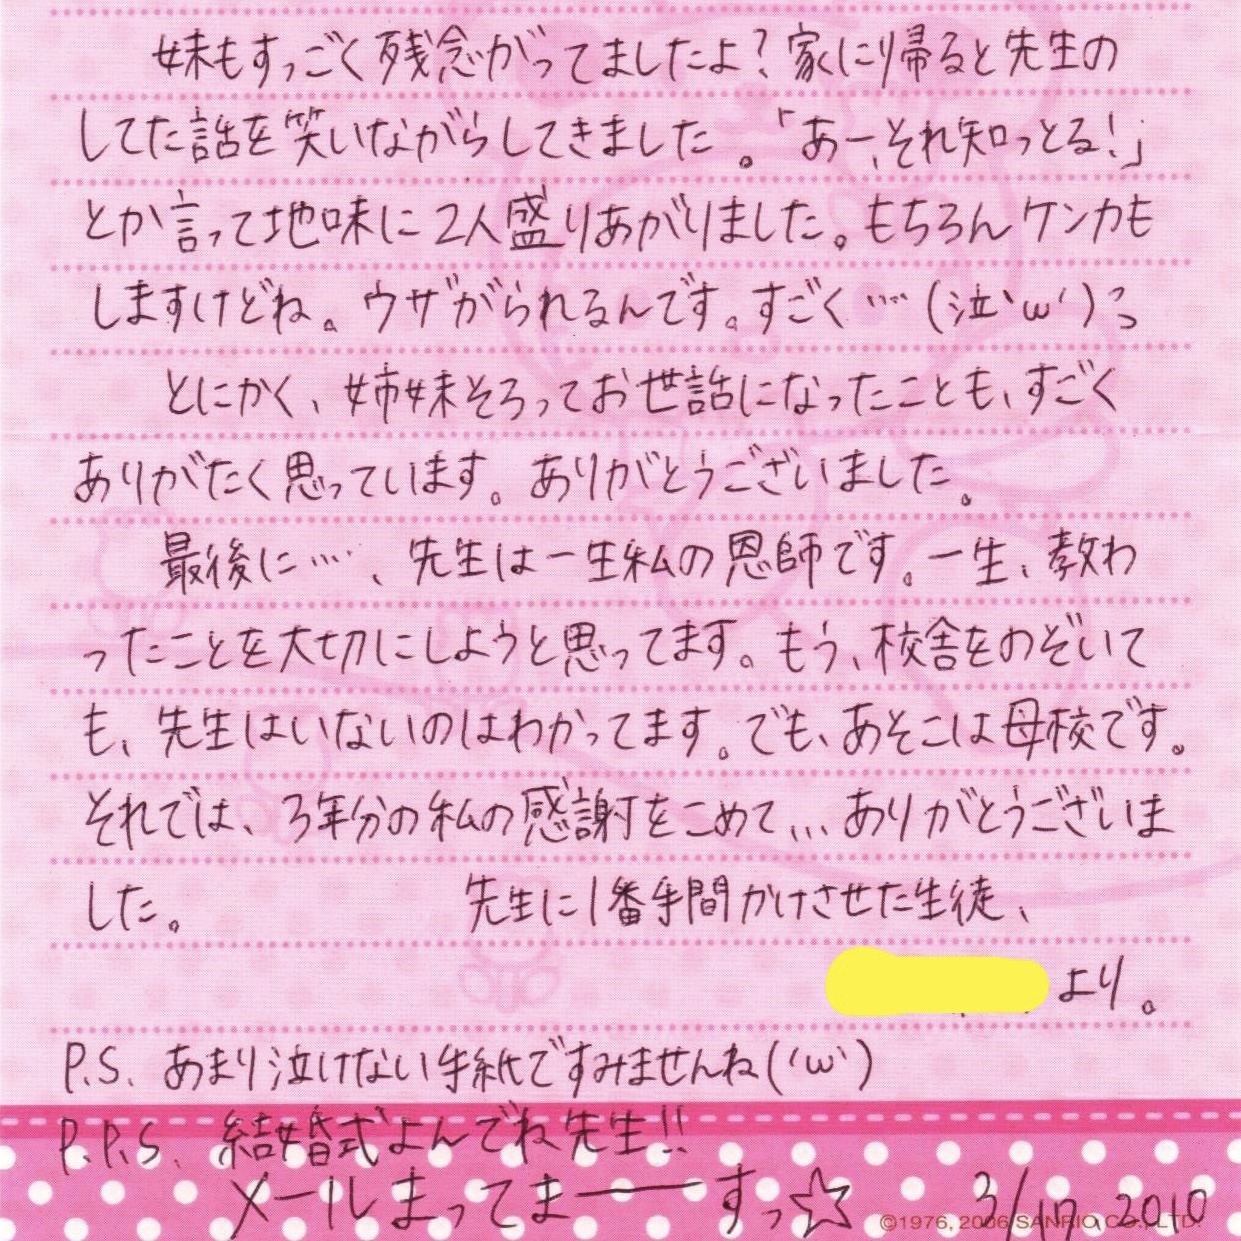 妹もすっごく残念がってましたよ?家に帰ると先生の
してた話を笑いながらしてきました。「あー、それ知っとる!」
とか言って地味に2人盛りあがりました。もちろんケンカも
しますけどね。ウザがられるんです。すごく…(泣`ω´)っ
とにかく、姉妹そろってお世話になったことも、すごく
ありがたく思っています。ありがとうございました。
最後に…、先生は一生私の恩師です。一生、教わ
ったことを大切にしようと思ってます。もう、校舎をのぞいて
も、先生はいないのはわかってます。でも、あそこは母校です。
それでは、3年分の私の感謝をこめて...ありがとうございま
した。 先生に1番手間かけさせた生徒、
より。
P.S. あまり泣けない手紙ですみませんね(´ω`)
P.P.S. 結婚式よんでね先生!!
メールまってまーーーすっ☆ 3/17. 2010
©1976, 2006 SANRIO CO., LTD.